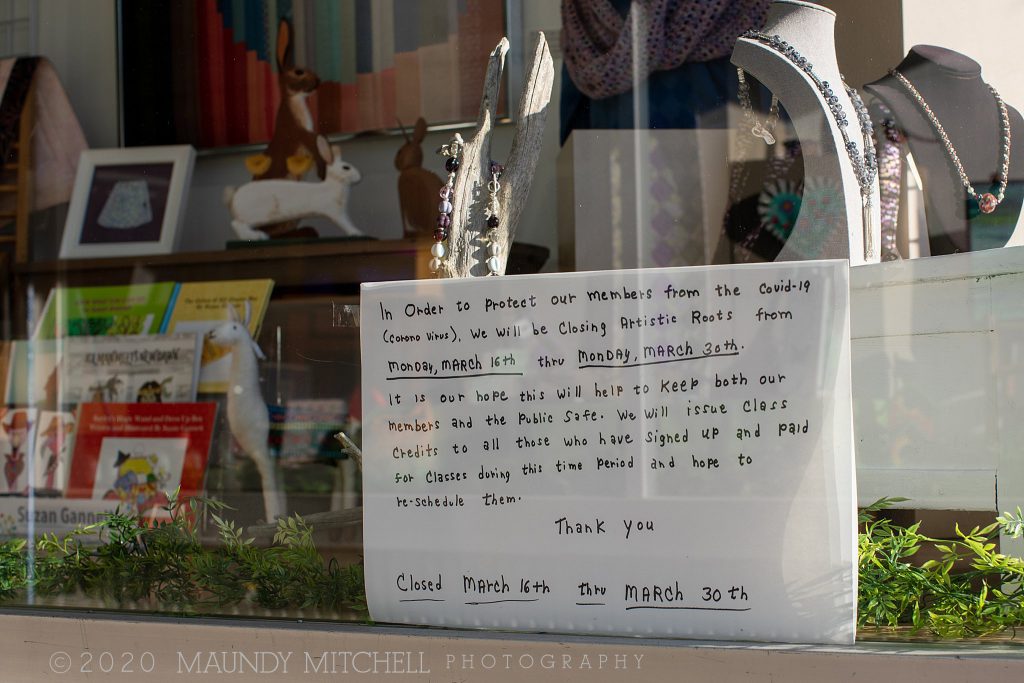 In Order to protect our members from the Covid-19
(Corono Virus), we will be Closing Artistic Roots from
Monday, MARCH 16th thru MONDAY, MARCH 30th.
It is our hope this will help to keep both our
members and the Public Safe. We will issue Class
Credits to all those who have signed up and paid
for Classes during this time period and hope to
re-schedule them.
Thank you
Closed March 16th thru MARCH 30th
Suzan Gannett
©2020 MAUNDY MITCHELL PHOTOGRAPHY